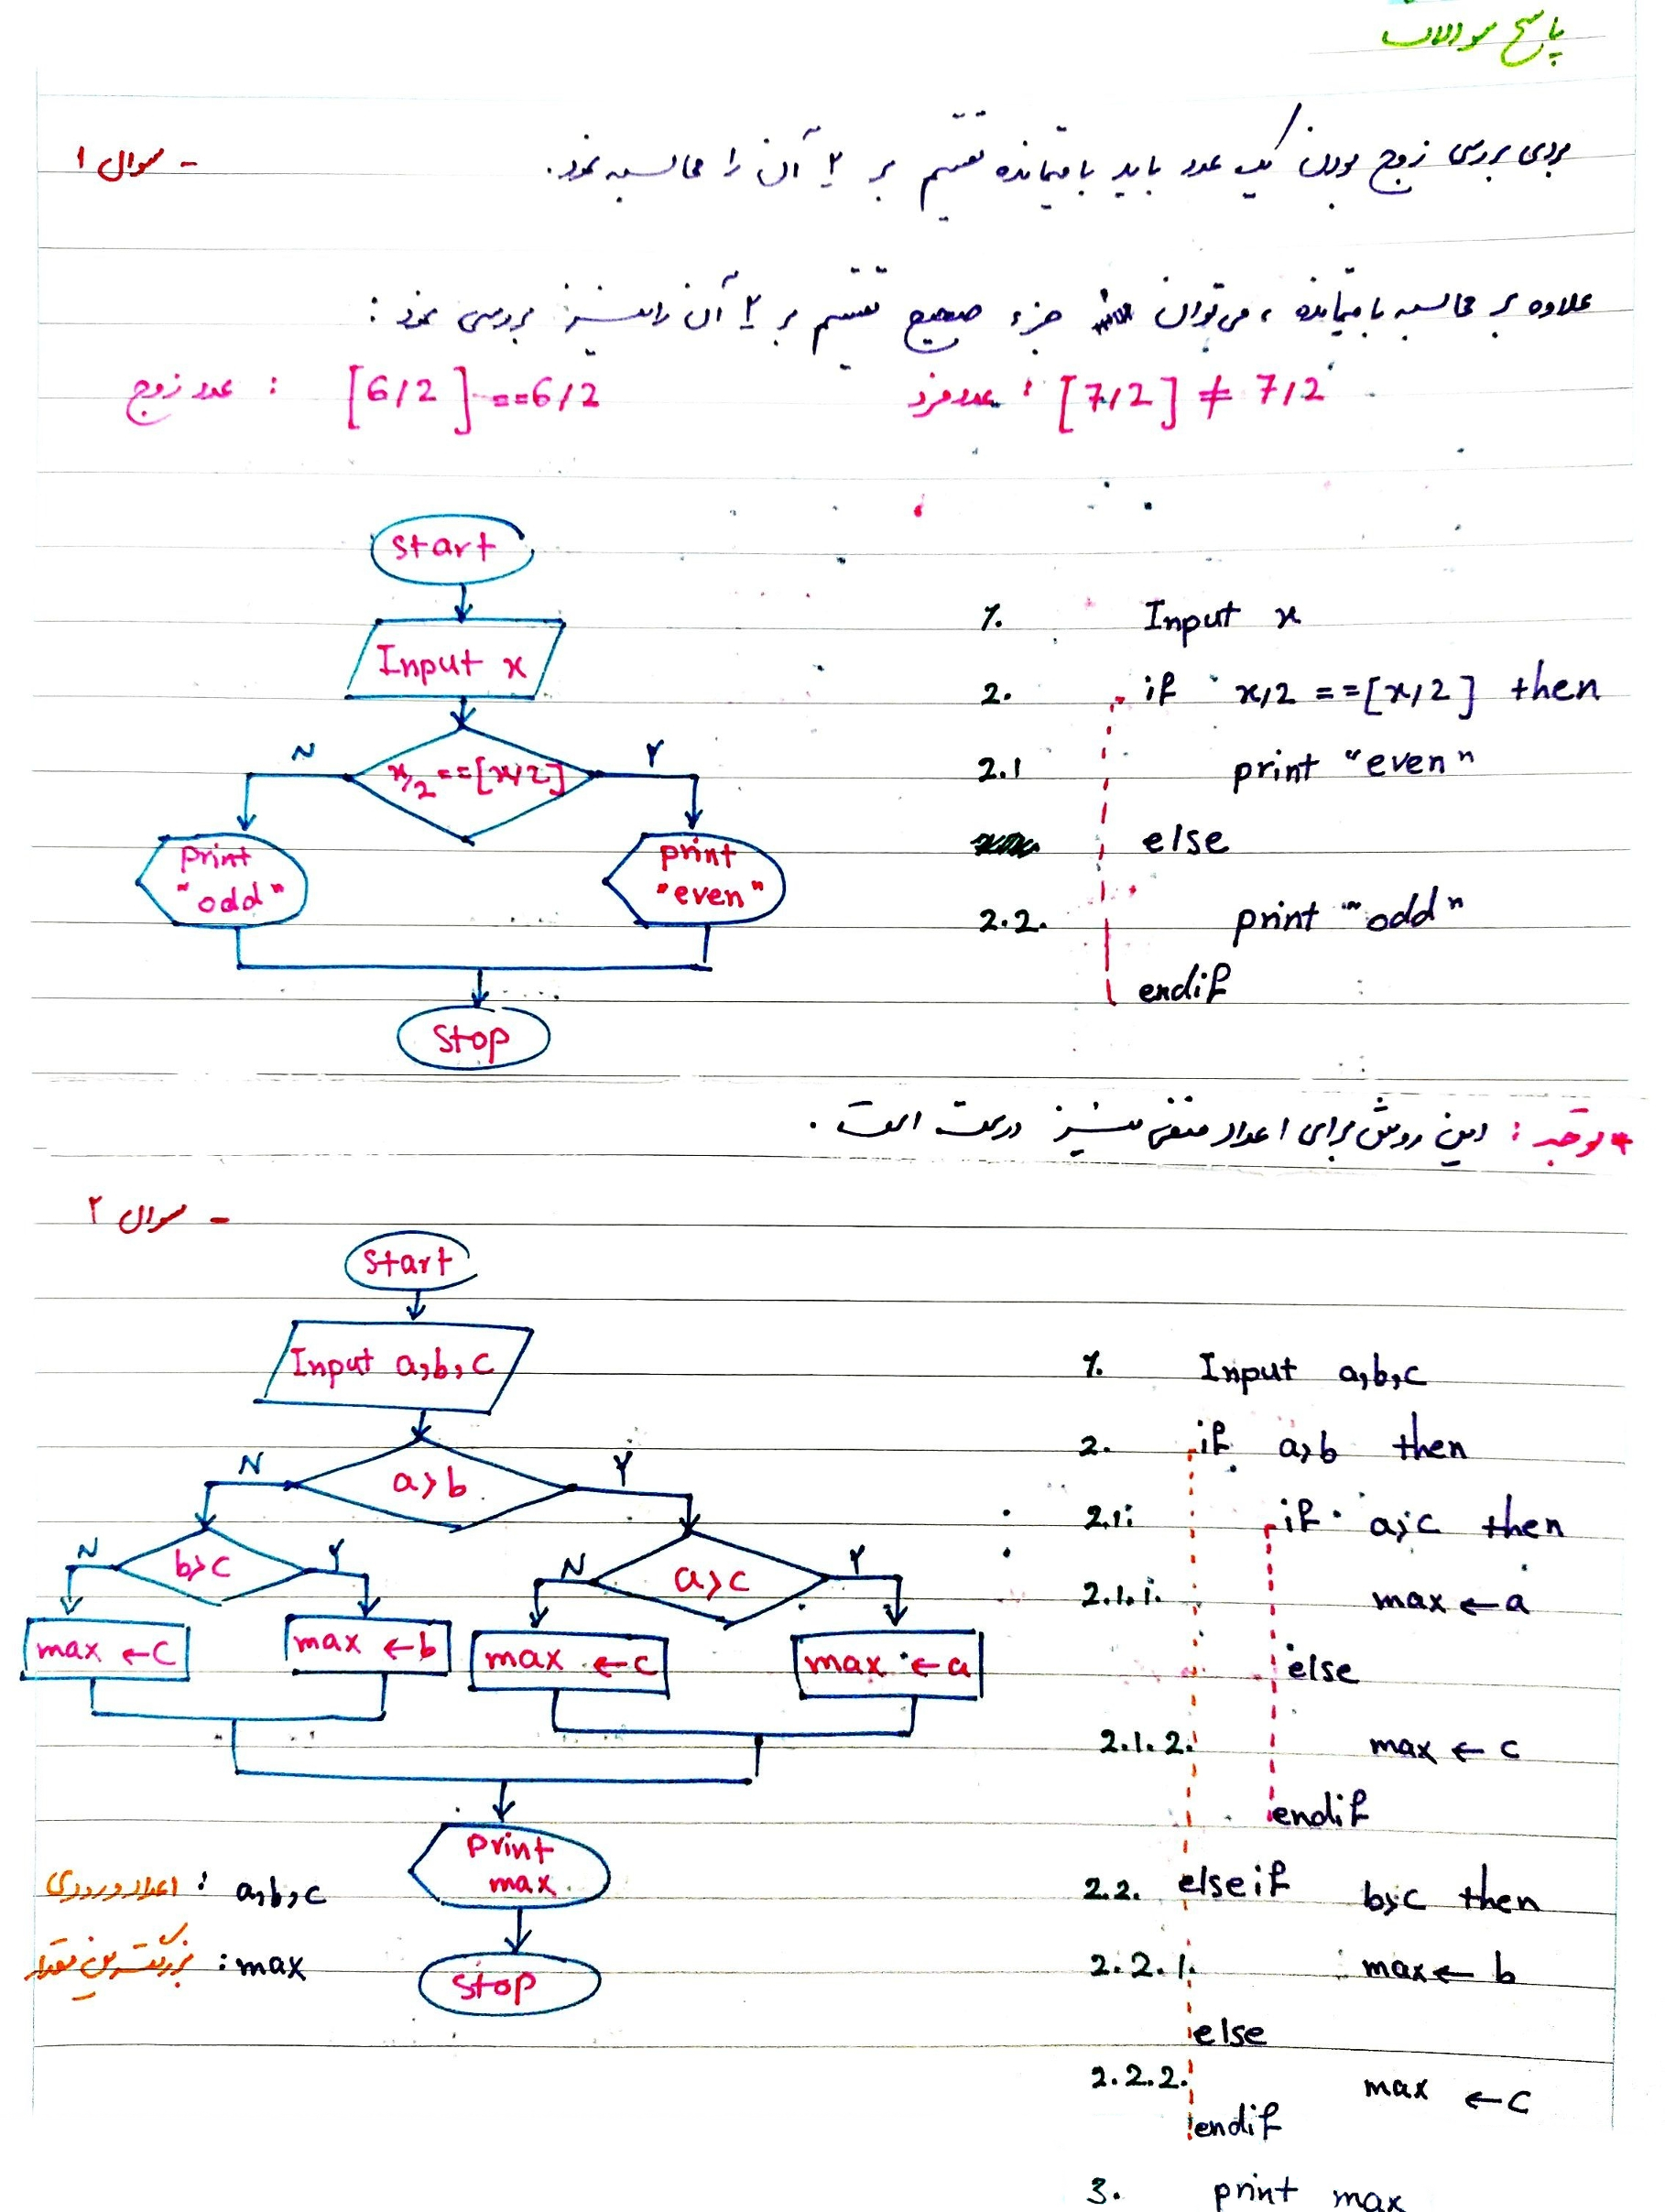 پاسخ سوالات
- سوال ۱
برای بررسی زوج بودن یک عدد باید باقیمانده تقسیم بر ۲ آن را محاسبه نمود.
علاوه بر محاسبه باقیمانده ، می‌توان جزء صحیح تقسیم بر ۲ آن را نیز بررسی نمود :
عدد زوج : [6/2] == 6/2
عدد فرد : [7/2] ≠ 7/2
start
Input x
x/2 == [x/2]
N
Y
print "odd"
print "even"
stop
1. Input x
2. if x/2 == [x/2] then
2.1 print "even"
else
2.2. print "odd"
endif
* توجه : این روش برای اعداد منفی نیز درست است .
- سوال ۲
start
Input a,b,c
a>b
N
Y
b>c
N
Y
a>c
N
Y
max ← c
max ← b
max ← c
max ← a
print max
stop
اعداد ورودی : a,b,c
بزرگترین مقدار : max
1. Input a,b,c
2. if a>b then
2.1. if a>c then
2.1.1. max ← a
else
2.1.2. max ← c
endif
2.2. elseif b>c then
2.2.1. max ← b
else
2.2.2. max ← c
endif
3. print max